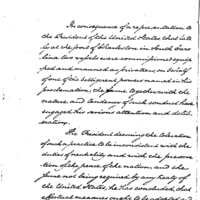 In consequence of a representation to
the President of the United States that late-
ly at the port of Charleston in South Caro-
lina two vessels were commissioned equipp-
ed and manned as privateers on behalf
of one of the belligerent powers named in his
proclamation; the same together with the
nature and tendency of such conduct have
engaged his serious attention and delib-
eration.
The President deeming the toleration
of such a practice to be inconsistent with the
duties of neutrality and with the preserva-
tion of the peace of the nation; and the
same not being required by any treaty of
the United States, he has concluded, that
effectual measures ought to be adopted